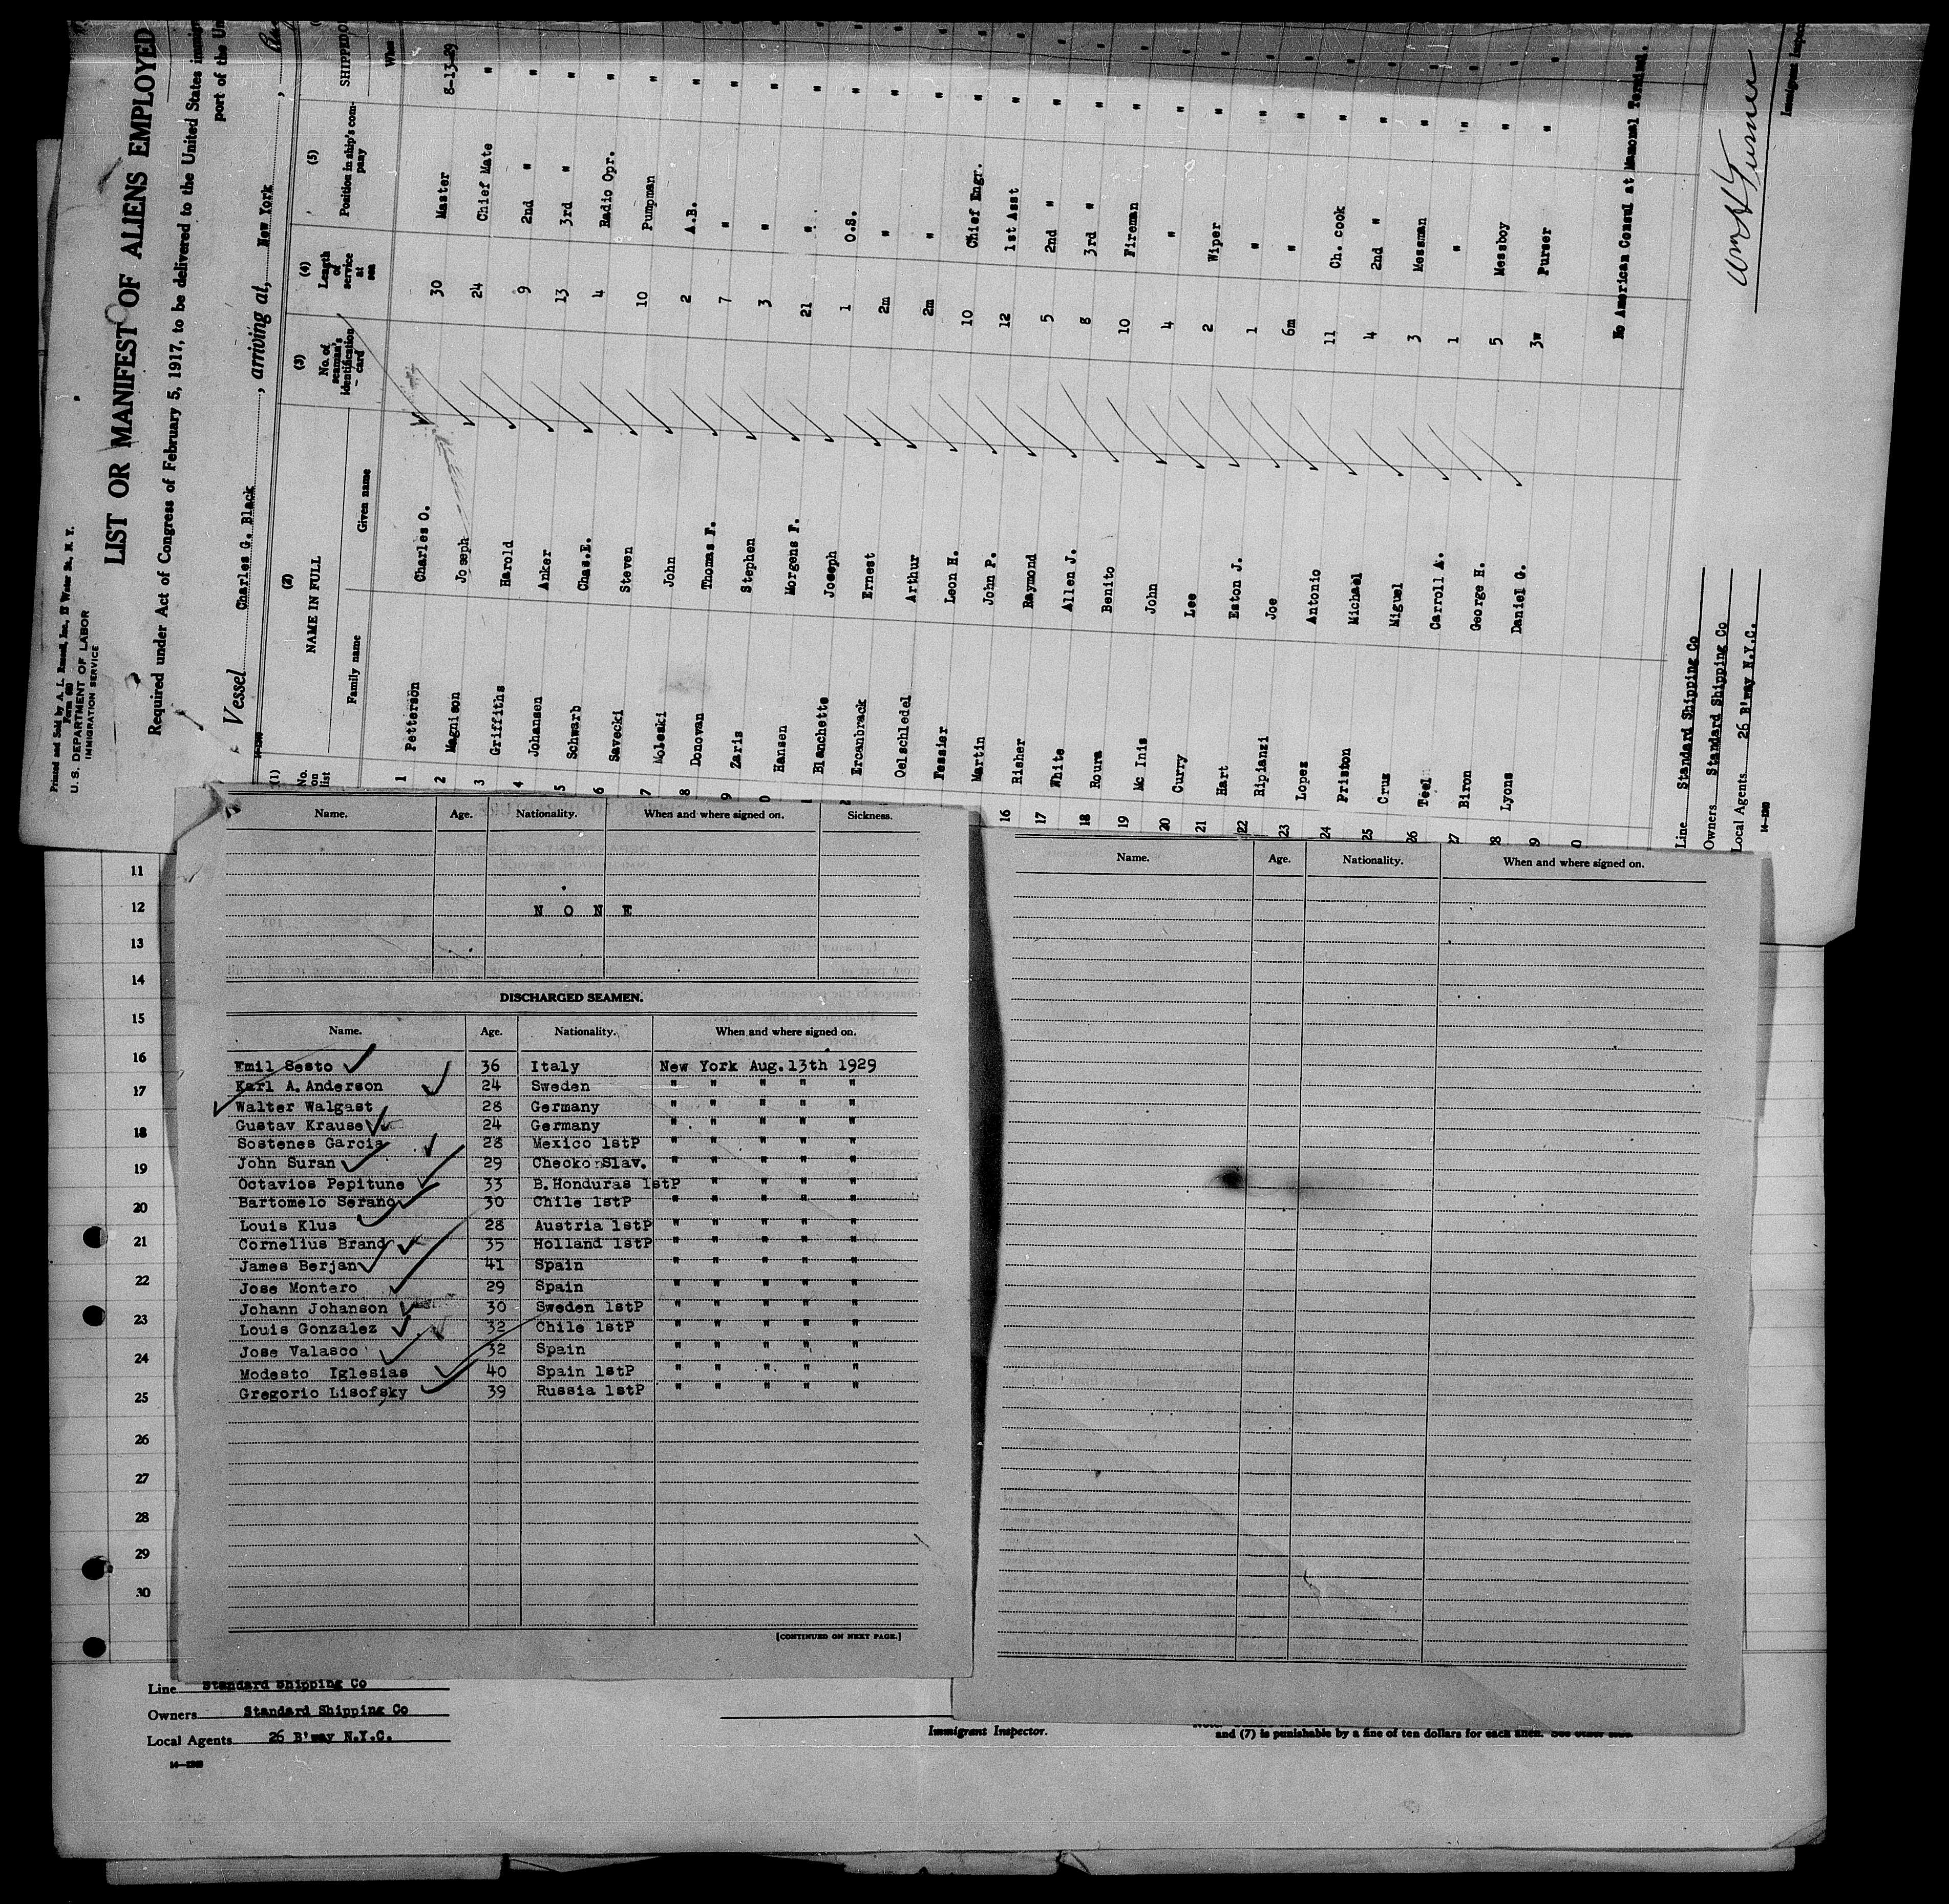 Printed and Sold by A. L. Russell, Inc., Water St., N. Y.
U. S. DEPARTMENT OF LABOR
IMMIGRATION SERVICE
LIST OR MANIFEST OF ALIENS EMPLOYED
Required under Act of Congress of February 5, 1917, to be delivered to the United States
port of the
Vessel Charles G. Black , arriving at, New York ,
(1) (2) (3) (4) (5)
No. on list NAME IN FULL No. of seaman's identification card Length of service at sea Position in ship's company SHIPPED
Family name Given name When
1 Petterson Charles O. 30 Master 8-13-29
2 Magnison Joseph 24 Chief Mate "
3 Griffiths Harold 9 2nd " "
4 Johansen Anker 13 3rd " "
5 Schwarb Chas.E. 4 Radio Opr. "
6 Savecki Steven 10 Pumpman "
7 Moleski John 2 A.B. "
8 Donovan Thomas F. 7 " "
9 Zaris Stephen 3 " "
0 Hansen Morgens F. 21 " "
Blanchette Joseph 1 O.S. "
Ercanbrack Ernest 2m " "
Oelschledel Arthur 2m " "
Fessier Leon H. 10 Chief Engr. "
Martin John P. 12 1st Asst "
16 Risher Raymond 5 2nd " "
17 White Allen J. 8 3rd " "
18 Roura Benito 10 Fireman "
19 Mc Inis John 4 " "
20 Curry Lee 2 Wiper "
21 Hart Eston J. 1 " "
22 Ripianzi Joe 6m " "
23 Lopez Antonio 11 Ch. cook "
24 Priston Michael 4 2nd " "
25 Cruz Miguel 3 Messman "
26 Teel Carroll A. 1 " "
27 Biron George H. 5 Messboy "
28 Lyons Daniel G. 3w Purser "
No American Consul at Mamonal Terminal.
Line Standard Shipping Co
Owners Standard Shipping Co
Local Agents 26 B'way N.Y.C.
Immigrant
Name. Age. Nationality. When and where signed on. Sickness.
N O N E
DISCHARGED SEAMEN.
Name. Age. Nationality. When and where signed on.
Emil Sesto 36 Italy New York Aug.13th 1929
Karl A.Anderson 24 Sweden " " " " "
Walter Walgast 28 Germany " " " " "
Gustav Krause 24 Germany " " " " "
Sostenes Garcia 28 Mexico 1stP " " " " "
John Suran 29 Checko Slav. " " " " "
Octavios Pepitune 33 B.Honduras 1stP " " " "
Bartomelo Serano 30 Chile 1stP " " " " "
Louis Klus 28 Austria 1stP " " " " "
Cornelius Brand 35 Holland 1stP " " " " "
James Berjan 41 Spain " " " " "
Jose Montero 29 Spain " " " " "
Johann Johanson 30 Sweden 1stP " " " " "
Louis Gonzalez 32 Chile 1stP " " " " "
Jose Valasco 32 Spain " " " " "
Modesto Iglesias 40 Spain 1stP " " " " "
Gregorio Lisofsky 39 Russia 1stP " " " " "
[CONTINUED ON NEXT PAGE.]
Name. Age. Nationality. When and where signed on.
11
12
13
14
15
16
17
18
19
20
21
22
23
24
25
26
27
28
29
30
Line Standard Shipping Co
Owners Standard Shipping Co
Local Agents 26 B'way N.Y.C.
Immigrant Inspector.
and (7) is punishable by a fine of ten dollars for each alien. See other side.